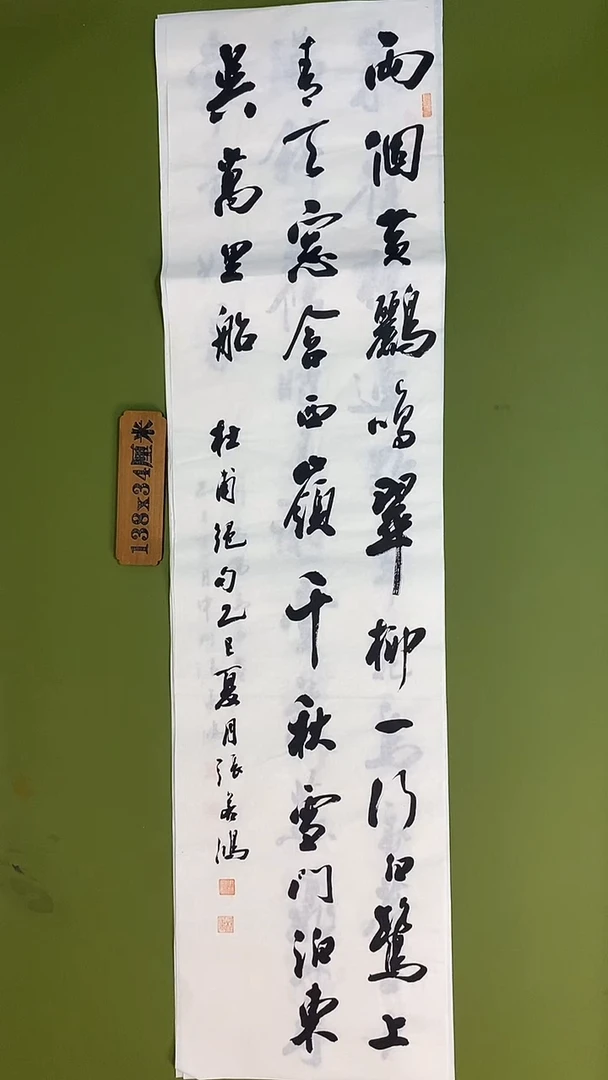 兩個黃鸝鳴翠柳一行白鷺上
青天窓含西嶺千秋雪門泊東
吳萬里船
杜甫絕句乙巳夏月張若鴻
138x34厘米